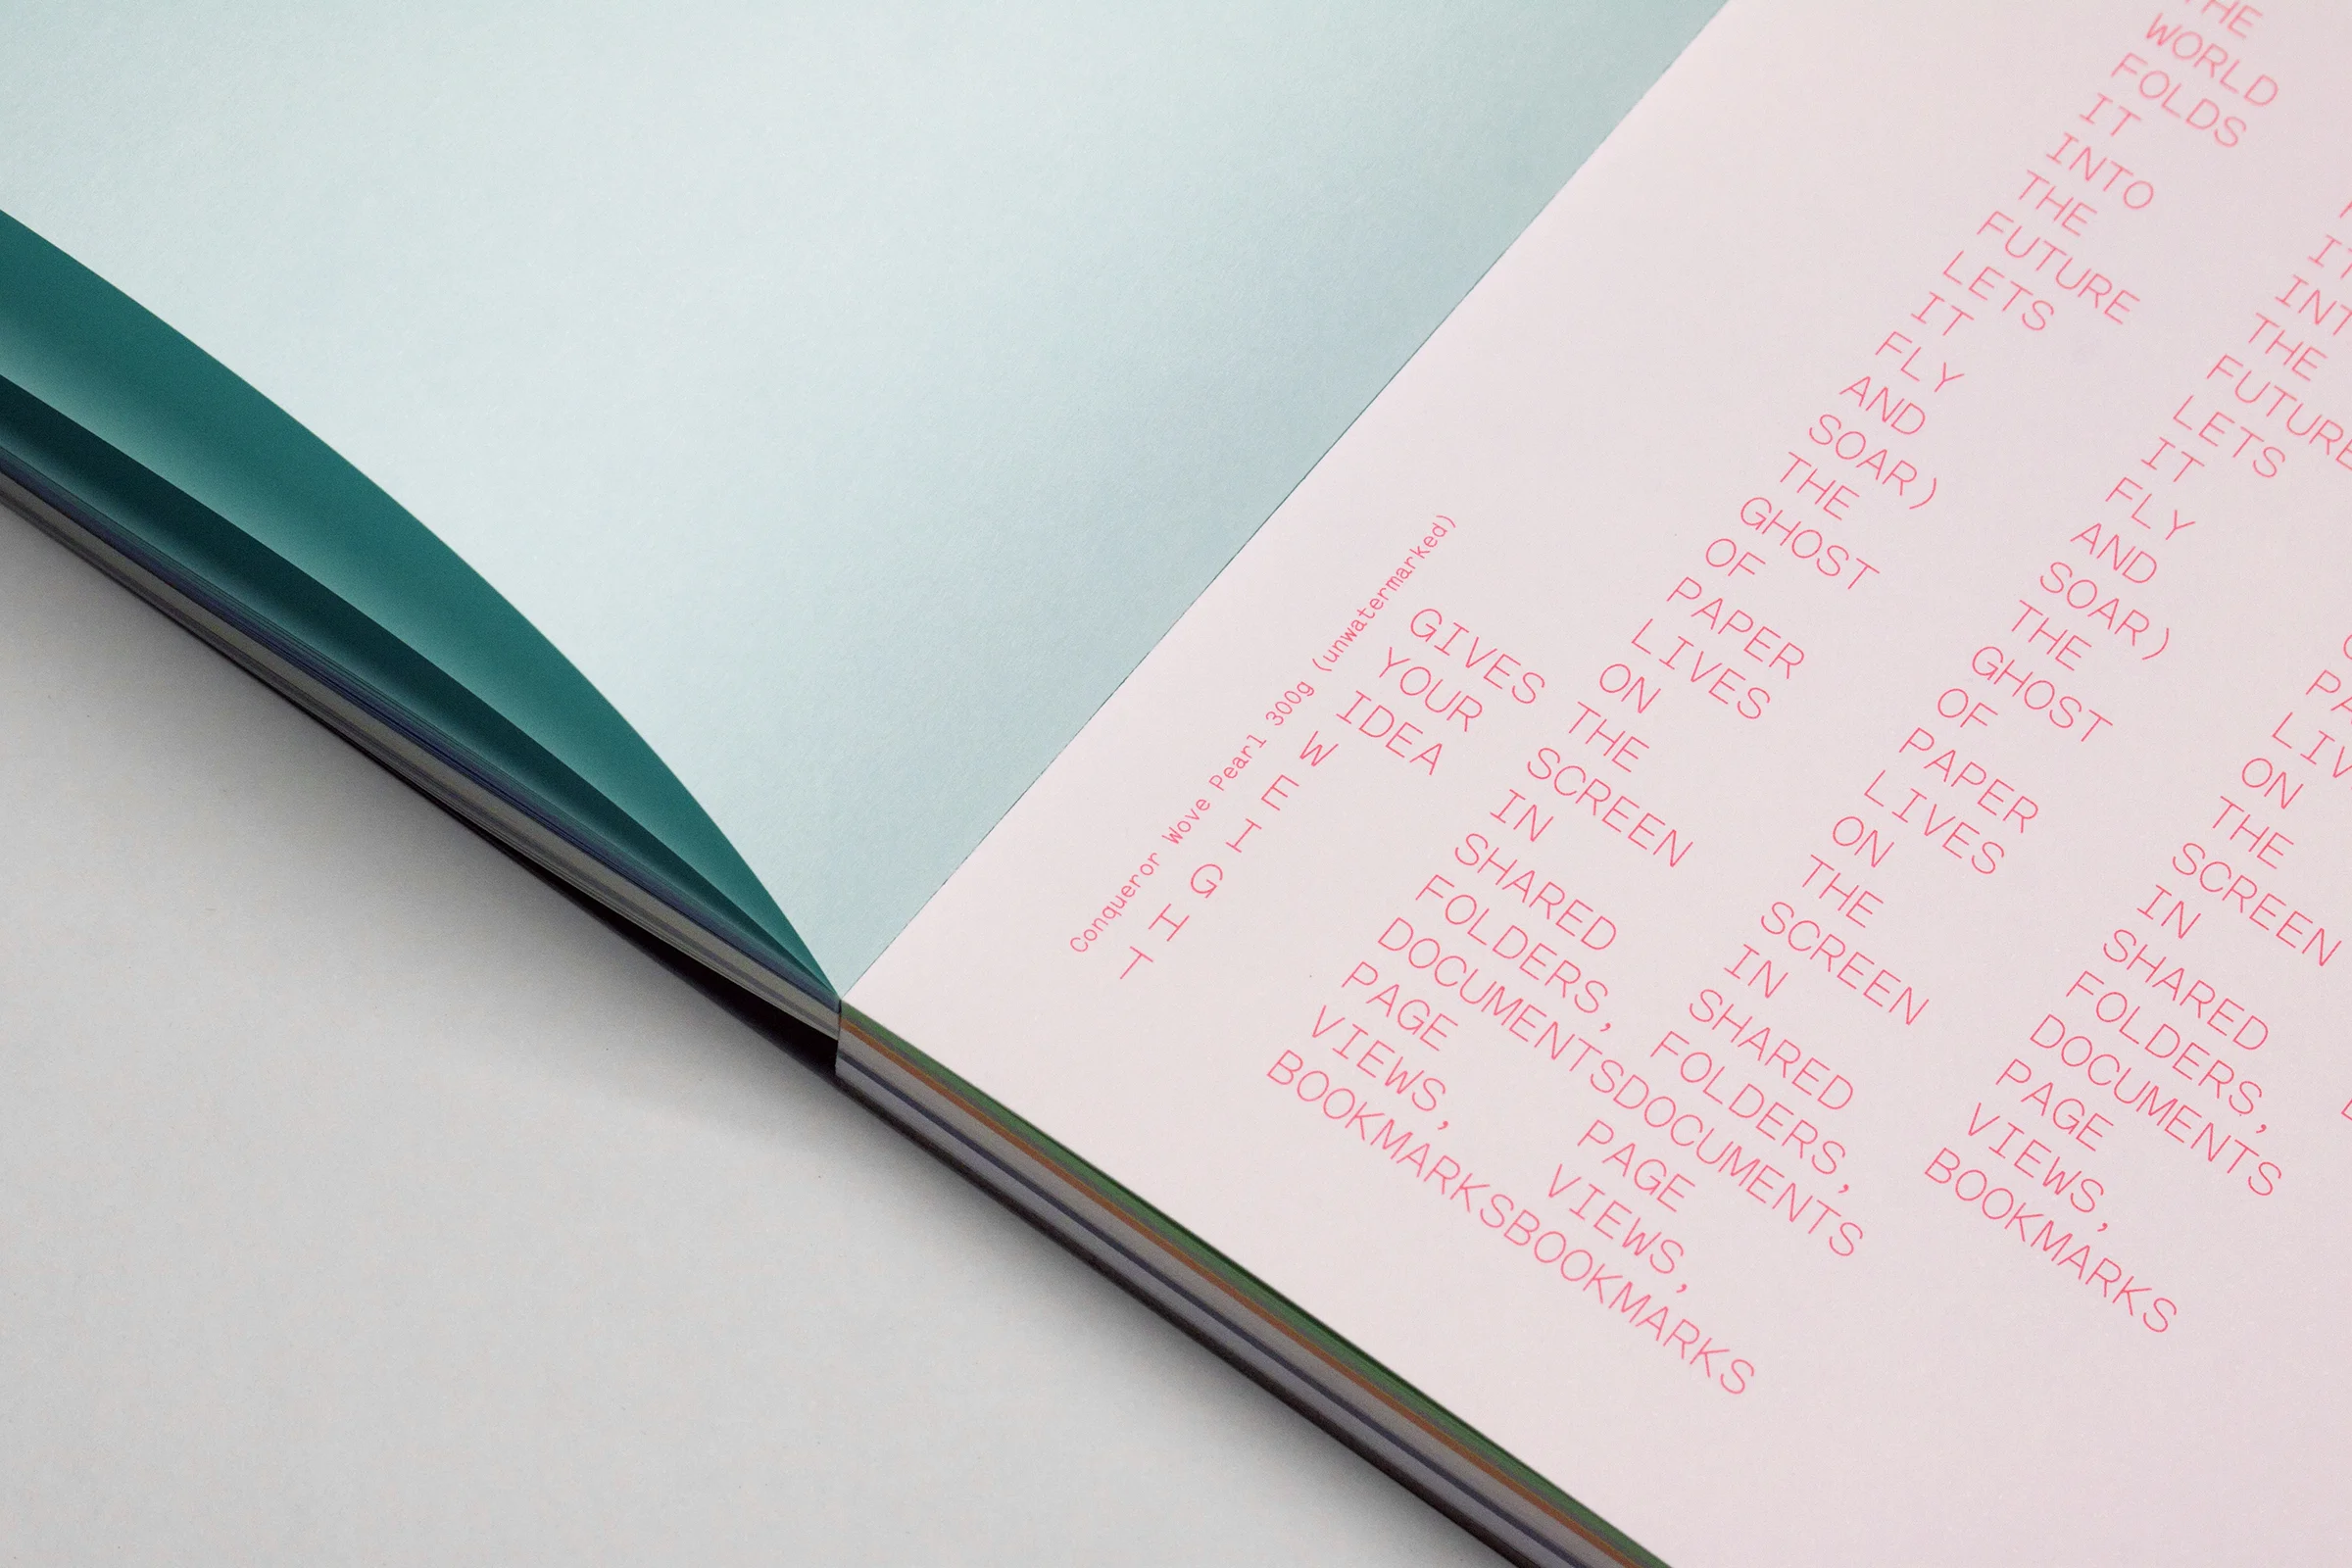 Conqueror Wove Pearl 300g (unwatermarked)
GIVES
YOUR
IDEA
W
E
I
G
H
T
THE
WORLD
FOLDS
IT
INTO
THE
FUTURE
LETS
IT
FLY
AND
SOAR)
THE
GHOST
OF
PAPER
LIVES
ON
THE
SCREEN
IN
SHARED
FOLDERS,
DOCUMENTS
PAGE
VIEWS,
BOOKMARKS
IT
INT
THE
FUTURE
LETS
IT
FLY
AND
SOAR)
THE
GHOST
OF
PAPER
LIVES
ON
THE
SCREEN
IN
SHARED
FOLDERS,
DOCUMENTS
PAGE
VIEWS,
BOOKMARKS
PA
LIV
ON
THE
SCREEN
IN
SHARED
FOLDERS,
DOCUMENTS
PAGE
VIEWS,
BOOKMARKS